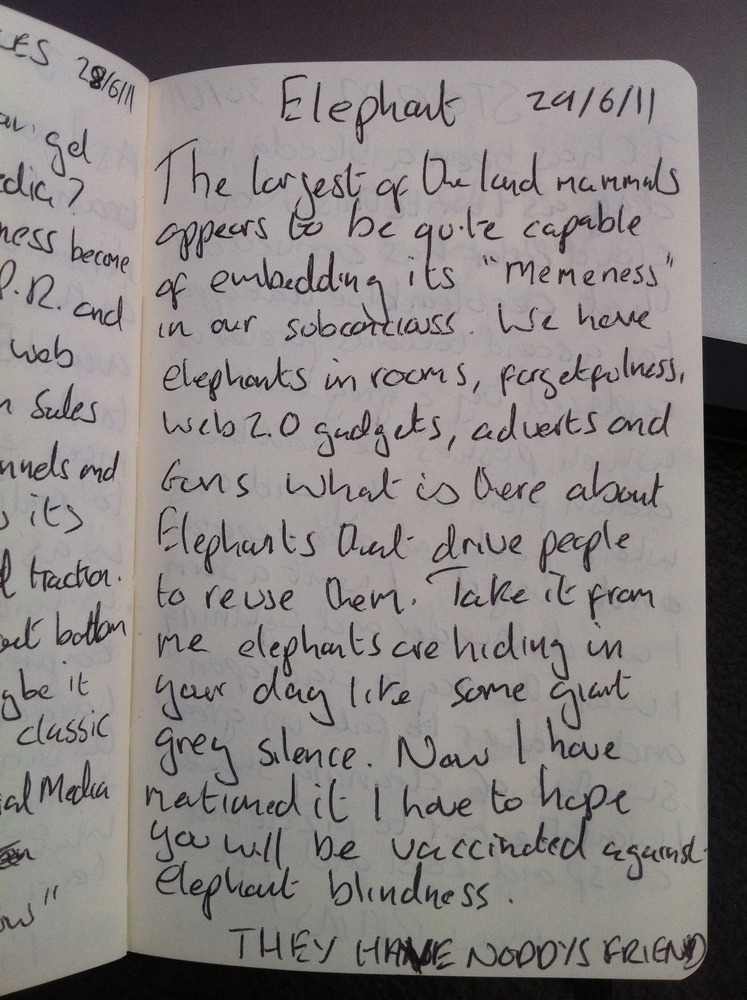 CES 28/6/11
gel
edia?
ness become
P.R. and
web
n Sales
nnels and
its
l traction.
out bottom
ybe it
classic
ial Media
ow"
Elephant 29/6/11
The largest of the land mammals
appears to be quite capable
of embedding its "Memeness"
in our subconciouss. We have
elephants in rooms, forgetfulness,
Web 2.0 gadgets, adverts and
what is there about
Elephants that drive people
to reuse them. Take it from
me elephants are hiding in
your day like some giant
grey silence. Now I have
mentioned it I have to hope
you will be vaccinated against
elephant blindness.
THEY HAVE NODDYS FRIEND